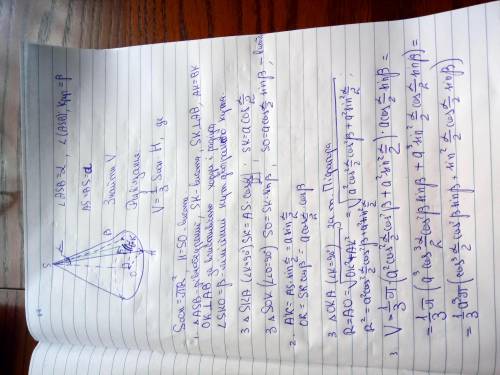 ∠ASB=α, ∠(ASB), Kон.=β
AS=BS=a
Знайти V
Розв'язання
V = 1/3 Sосн H, де
Sосн = πR², H=SO - висота
1. △ASB - рівнобедрений, SK - висота, SK⊥AB, AK=BK
OK⊥AB за властивістю хорди і радіуса
∠SKO=β - лінійний кут двогранного кута.
З △SKB (∠K=90°) SK=AS·cos α/2; SK=a cos α/2
З △SOK (∠O=90°) SO=SK·sinβ, SO=a cos α/2 sinβ -
2. AK=AS·sin α/2 = a sin α/2
OK=SK cosβ = a cos α/2 · cosβ
З △OKA (∠K=90°) за т. Піфагора
R=AO=√OK²+AK² = √a²cos² α/2 cos²β + a² sin² α/2;
R²=a²cos² α/2 cos²β + a² sin² α/2
3 V = 1/3 π (a²cos² α/2 cos²β + a² sin² α/2) · a cos α/2 sinβ =
= 1/3 π (a³ cos³ α/2 cos²β sinβ + a³ sin² α/2 cos α/2 sinβ) =
= 1/3 a³π (cos³ α/2 cos²β sinβ + sin² α/2 cos α/2 sinβ)
S
B
O
R
K
A